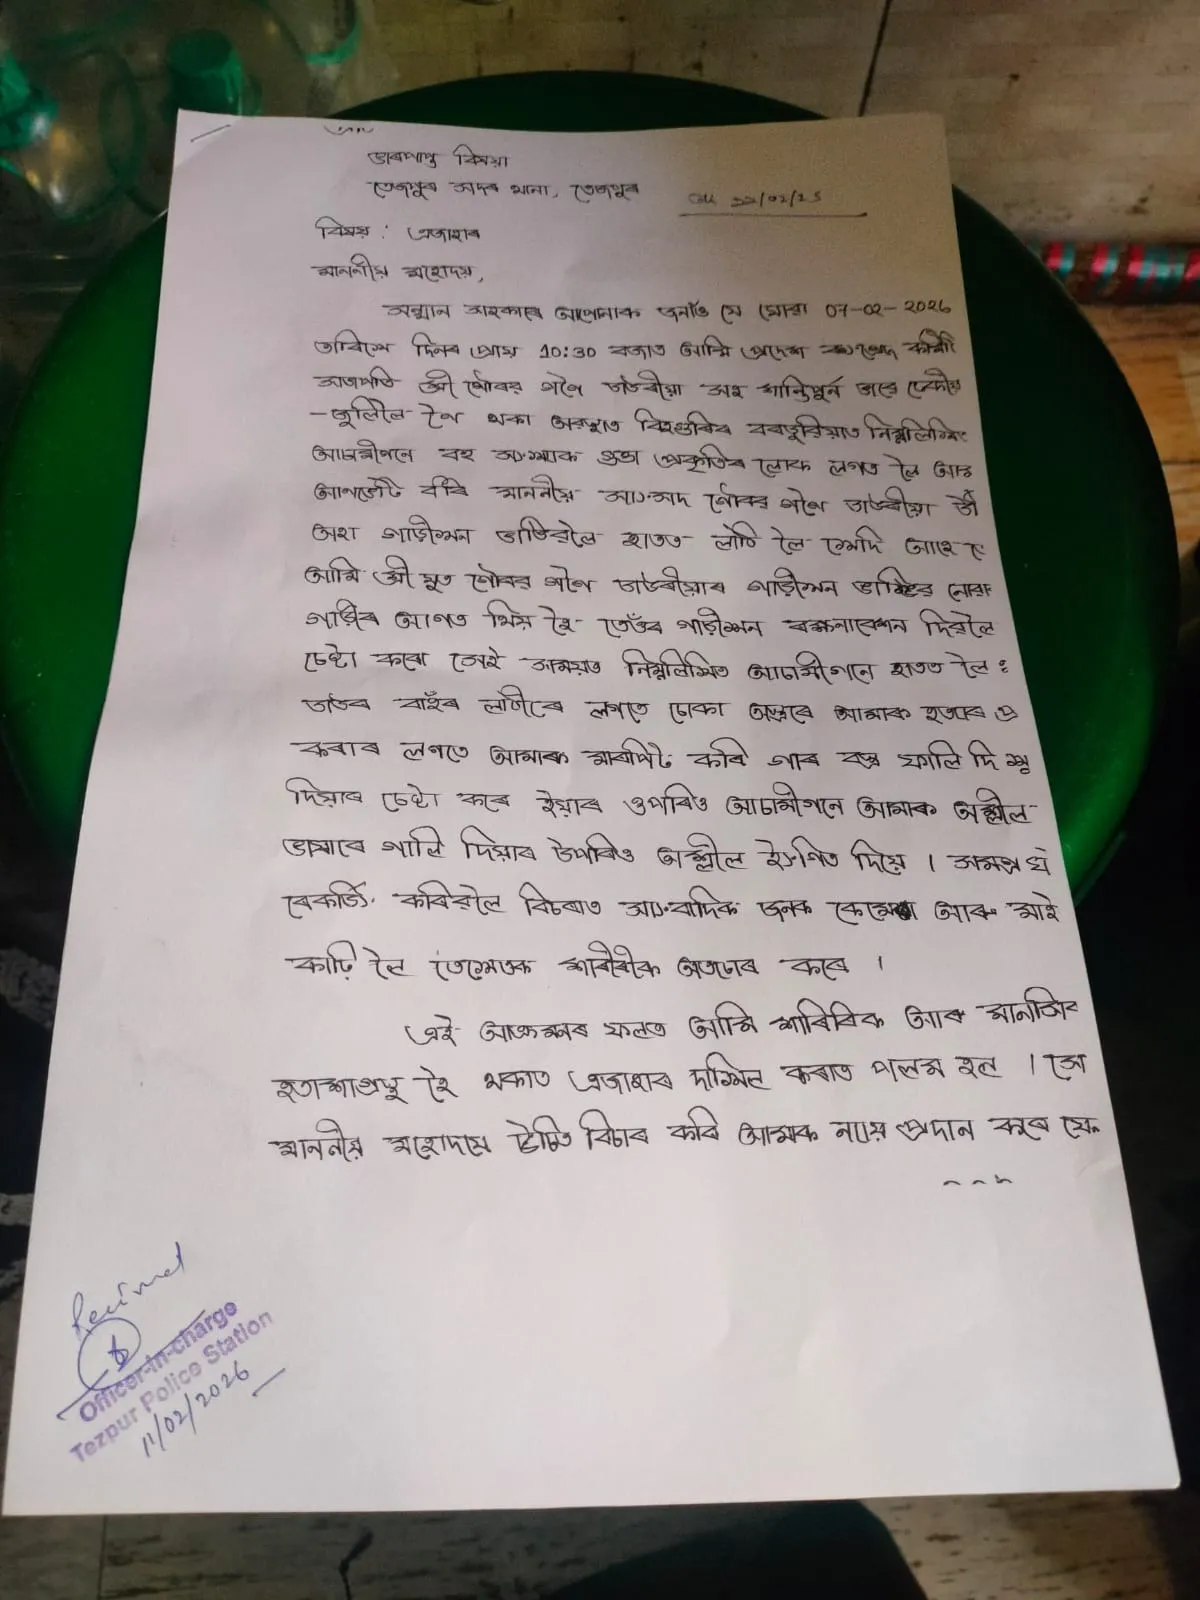 ভাৰপ্ৰাপ্ত বিষয়া
তেজপুৰ সদৰ থানা, তেজপুৰ
তাং ১১/02/25
বিষয় : এজাহাৰ
মাননীয় মহোদয়,
সন্মান সহকাৰে আপোনাক জনাওঁ যে যোৱা 07-02-2026
তাৰিখে দিনৰ প্ৰায় 10:30 বজাত আমি প্ৰদেশ কংগ্ৰেছ কমিটি
সভাপতি শ্ৰী গৌৰৱ গগৈ ডাঙৰীয়া সহ শান্তিপূৰ্ন ভাবে
জুলিলৈ গৈ থকা অৱস্থাত বিহগুৰিৰ বৰচুবুৰিয়াত নিম্নলিখিত
আচামীগনে বহু সংখ্যক গুণ্ডা প্ৰকৃতিৰ লোক লগত লৈ আমাক
আগভেটি ধৰি মাননীয় সাংসদ গৌৰৱ গগৈ ডাঙৰীয়া
অহা গাড়ীখন ভাঙিবলৈ হাতত লাঠি লৈ খেদি আহে
আমি শ্ৰী যুত গৌৰৱ গগৈ ডাঙৰীয়াৰ গাড়ীখন ভাঙিব নোৱা
গাড়ীৰ আগত থিয় হৈ তেওঁৰ গাড়ীখন ৰক্ষনাবেক্ষন দিবলৈ
চেষ্টা কৰো সেই সময়ত নিম্নলিখিত আচামীগনে হাতত লৈ
ডাঙৰ বাঁহৰ লাঠিৰে লগতে চোকা অস্ত্ৰৰে আমাক হত্যাৰ প্ৰ
কৰাৰ লগতে আমাক মাৰপিট কৰি গাৰ বস্ত্ৰ ফালি দি
দিয়াৰ চেষ্টা কৰে ইয়াৰ ওপৰিও আচামীগনে আমাক অশ্লীল
ভাষাৰে গালি দিয়াৰ উপৰিও অশ্লীল ইংগিত দিয়ে । সমগ্ৰ ঘ
ৰেকৰ্ডিং কৰিবলৈ বিচৰাত সাংবাদিক জনক কেমেৰা আৰু মাই
কাঢ়ি লৈ তেখেতক শাৰীৰীক অত্যচাৰ কৰে ।
এই আক্ৰমনৰ ফলত আমি শাৰিৰিক আৰু মানসিক
হতাশাগ্ৰস্ত হৈ থকাত এজাহাৰ দাখিল কৰাত পলম হল । সে
মাননীয় মহোদয়ে উচিত বিচাৰ কৰি আমাক ন্যায় প্ৰদান কৰে যেন
Received
Officer-in-charge
Tezpur Police Station
11/02/2026